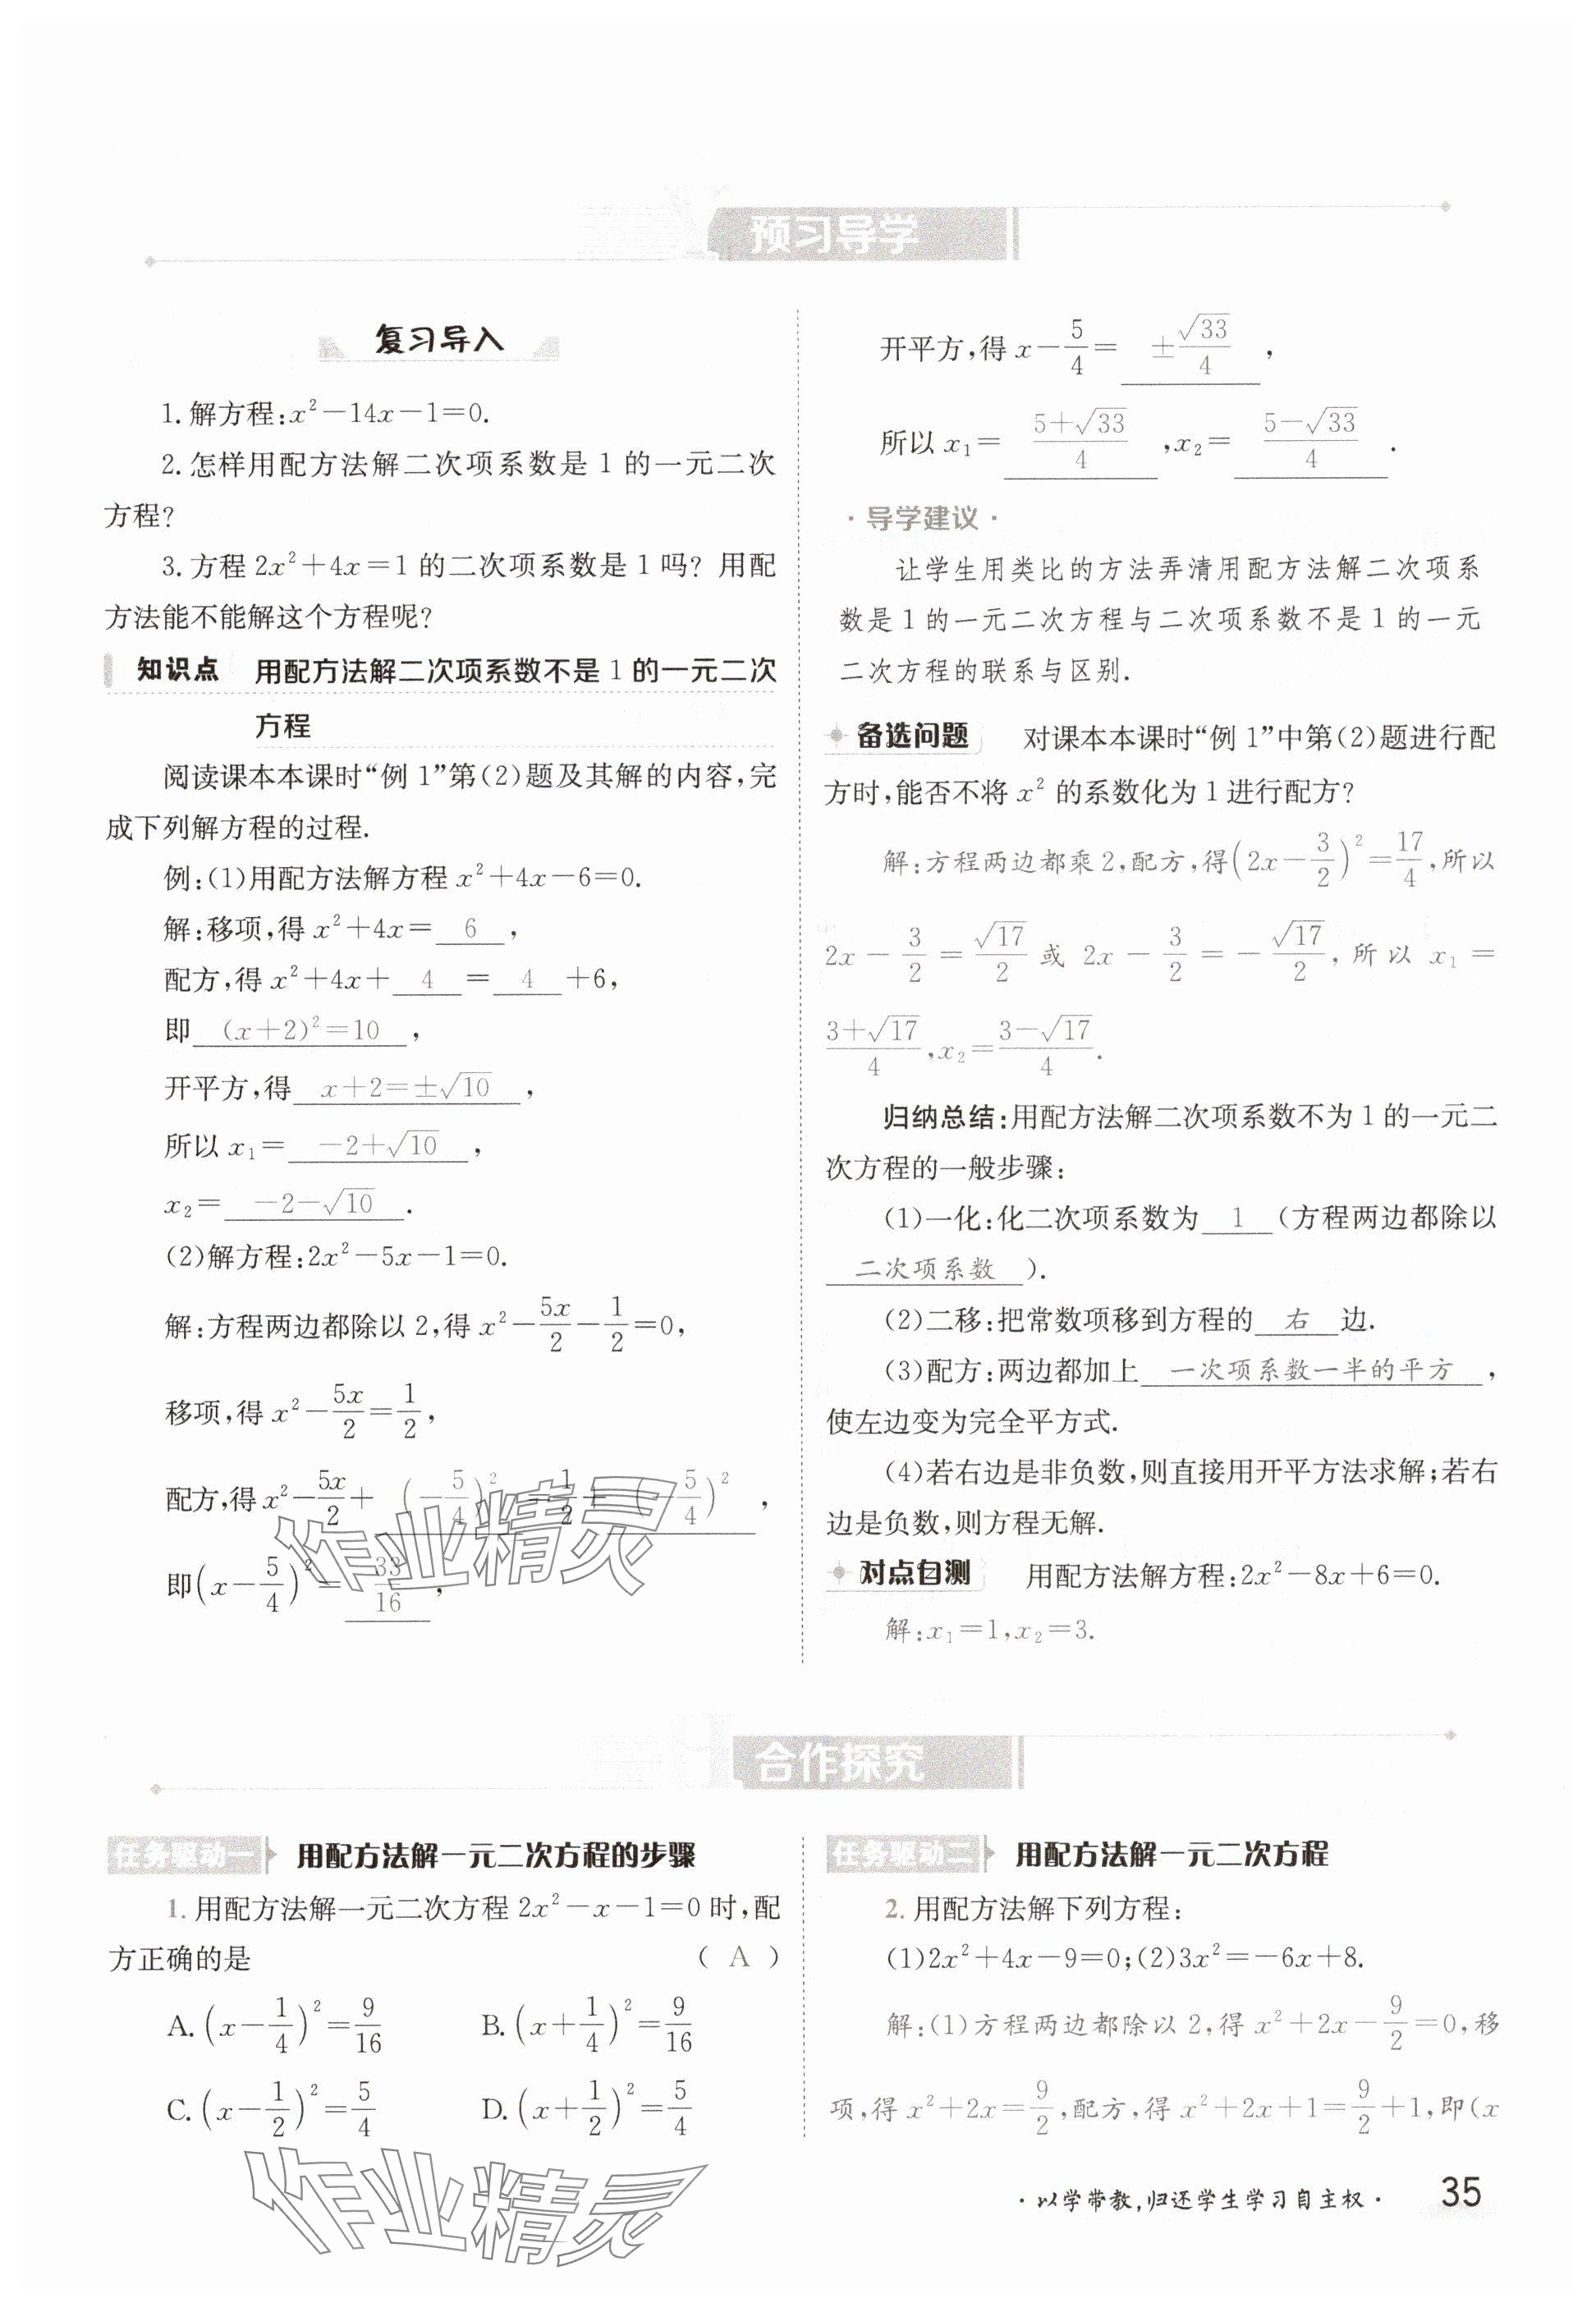 预习导学
复习导入
1.解方程:x²－14x－1＝0.
2.怎样用配方法解二次项系数是 1 的一元二次
方程?
3.方程 2x²＋4x＝1 的二次项系数是 1 吗? 用配
方法能不能解这个方程呢?
知识点 用配方法解二次项系数不是 1 的一元二次
方程
阅读课本本课时“例 1”第(2)题及其解的内容,完
成下列解方程的过程.
例:(1)用配方法解方程 x²＋4x－6＝0.
解:移项,得 x²＋4x＝ 6 ,
配方,得 x²＋4x＋ 4 ＝ 4 ＋6,
即 (x＋2)²＝10 ,
开平方,得 x＋2＝±√10 ,
所以 x₁＝ －2＋√10 ,
x₂＝ －2－√10 .
(2)解方程:2x²－5x－1＝0.
解:方程两边都除以 2,得 x²－5x/2－1/2＝0,
移项,得 x²－5x/2＝1/2,
配方,得 x²－5x/2＋ (－5/4)²＝1/2＋(－5/4)² ,
即(x－5/4)²＝ 33/16 ,
开平方,得 x－5/4＝ ±√33/4 ,
所以 x₁＝ (5＋√33)/4 ,x₂＝ (5－√33)/4 .
·导学建议·
让学生用类比的方法弄清用配方法解二次项系
数是 1 的一元二次方程与二次项系数不是 1 的一元
二次方程的联系与区别.
备选问题 对课本本课时“例 1”中第(2)题进行配
方时,能否不将 x² 的系数化为 1 进行配方?
解:方程两边都乘 2,配方,得(2x－3/2)²＝17/4,所以
2x－3/2＝√17/2 或 2x－3/2＝－√17/2,所以 x₁＝
(3＋√17)/4,x₂＝(3－√17)/4.
归纳总结:用配方法解二次项系数不为 1 的一元二
次方程的一般步骤:
(1)一化:化二次项系数为 1 (方程两边都除以
二次项系数 ).
(2)二移:把常数项移到方程的 右 边.
(3)配方:两边都加上 一次项系数一半的平方 ,
使左边变为完全平方式.
(4)若右边是非负数,则直接用开平方法求解;若右
边是负数,则方程无解.
对点自测 用配方法解方程:2x²－8x＋6＝0.
解:x₁＝1,x₂＝3.
作业精灵
合作探究
任务驱动一 用配方法解一元二次方程的步骤
1. 用配方法解一元二次方程 2x²－x－1＝0 时,配
方正确的是 ( A )
A. (x－1/4)²＝9/16 B. (x＋1/4)²＝9/16
C. (x－1/2)²＝5/4 D. (x＋1/2)²＝5/4
任务驱动二 用配方法解一元二次方程
2. 用配方法解下列方程:
(1)2x²＋4x－9＝0;(2)3x²＝－6x＋8.
解:(1)方程两边都除以 2,得 x²＋2x－9/2＝0,移
项,得 x²＋2x＝9/2,配方,得 x²＋2x＋1＝9/2＋1,即(x
作业精灵
·以学带教,归还学生学习自主权· 35